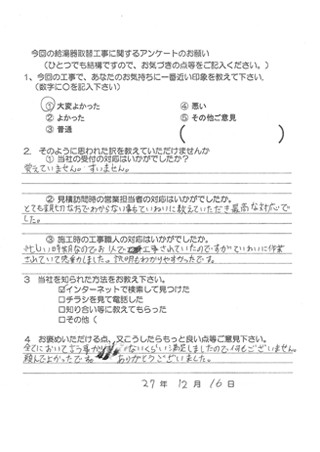 今回の給湯器取替工事に関するアンケートのお願い
(ひとつでも結構ですので、お気づきの点等をご記入ください。)
1、今回の工事で、あなたのお気持ちに一番近い印象を教えて下さい。
(数字に○を記入下さい)
① 大変よかった ④ 悪い
② よかった ⑤ その他ご意見
③ 普通 ( )
2. そのように思われた訳を教えていただけませんか
① 当社の受付の対応はいかがでしたか?
覚えていません。すいません。
② 見積訪問時の営業担当者の対応はいかがでしたか。
とても親切な方でわからない事もていねいに教えていただき最高な対応で
した。
③ 施工時の工事職人の対応はいかがでしたか。
忙しい時期なのでお1人で工事されていたのですがていねいに作業
されていて感動しました。説明もわかりやすかったです。
3 当社を知られた方法をお教え下さい。
☑インターネットで検索して見つけた
□チラシを見て電話した
□知り合い等に教えてもらった
□その他(
4 お褒めいただける点、又こうしたらもっと良い点等ご意見下さい。
全てにおいて言う事がないくらい満足しましたので何もございません。
頼んでよかったです。ありがとうございました。
27 年 12 月 16 日